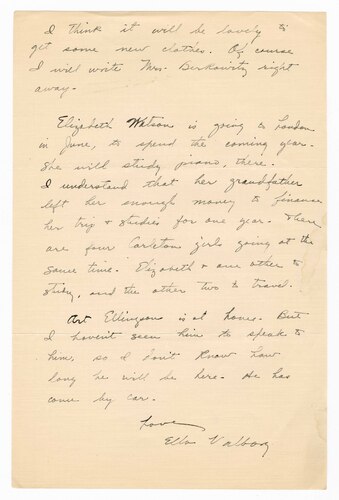 I think it will be lovely to
get some new clothes. Of course
I will write Mrs. Berkowitz right
away.
Elizabeth Watson is going to London
in June, to spend the coming year.
She will study piano, there.
I understand that her grandfather
left her enough money to finance
her trip & studies for one year. There
are four Carleton girls going at the
same time. Elizabeth & one other to
study, and the other two to travel.
Art Ellingson is at home. But
I haven't seen him to speak to
him, so I don't know how
long he will be here. He has
come by car.
Love
Ella Valborg